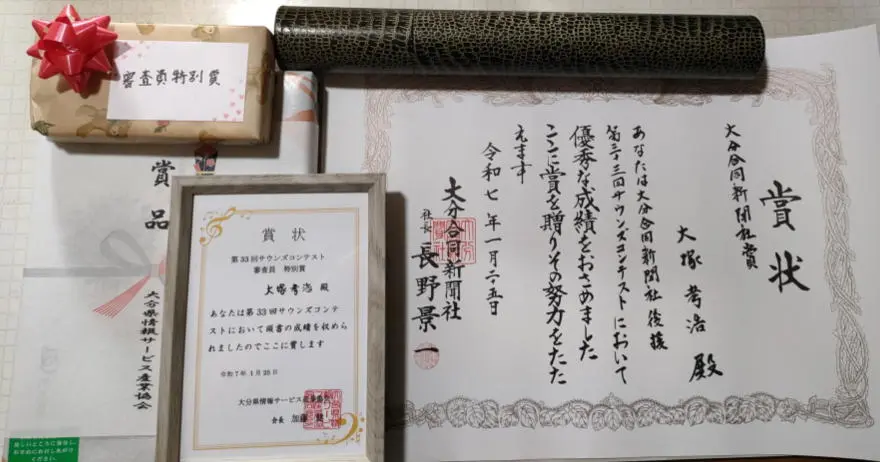 審査員特別賞
賞品
大分県情報サービス産業協会
賞状
第33回サウンズコンテスト
審査員 特別賞
大塚考浩 殿
あなたは第33回サウンズコンテ
ストにおいて頭書の成績を収めら
れましたのでここに賞します
令和7年1月25日
大分県情報サービス産業協会
会長 加藤
賞状
大分合同新聞社賞
大塚考浩 殿
あなたは大分合同新聞社後援
第三十三回サウンズコンテストにおいて
優秀な成績をおさめました
ここに賞を贈りその努力をたた
えます
令和七年一月二十五日
大分合同新聞社
社長 長野景一